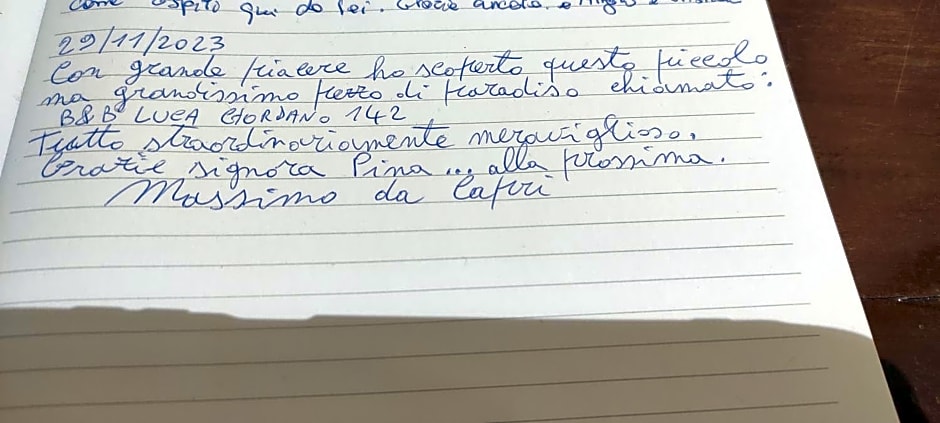 come ospite qui da lei. Grazie ancora.
29/11/2023
Con grande piacere ho scoperto questo piccolo
ma grandissimo pezzo di paradiso chiamato:
B&B LUCA GIORDANO 142
Tutto straordinariamente meraviglioso.
Grazie signora Pina... alla prossima.
Massimo da Capri